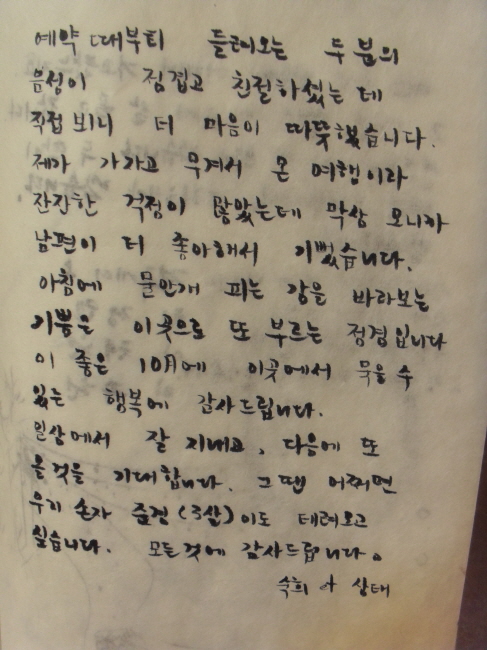 예약 때부터 들려오는 두 분의
음성이 정겹고 친절하셨는데
직접 보니 더 마음이 따뜻했습니다.
제가 가자고 우겨서 온 여행이라
잔잔한 걱정이 많았는데 막상 오니까
남편이 더 좋아해서 기뻤습니다.
아침에 물안개 피는 강을 바라보는
기쁨은 이곳으로 또 부르는 정경입니다
이 좋은 10月에 이곳에서 묵을 수
있는 행복에 감사드립니다.
일상에서 잘 지내고, 다음에 또
올것을 기대합니다. 그땐 어쩌면
우리 손자 준경(3살)이도 데려오고
싶습니다. 모든것에 감사드립니다.
숙희 상태